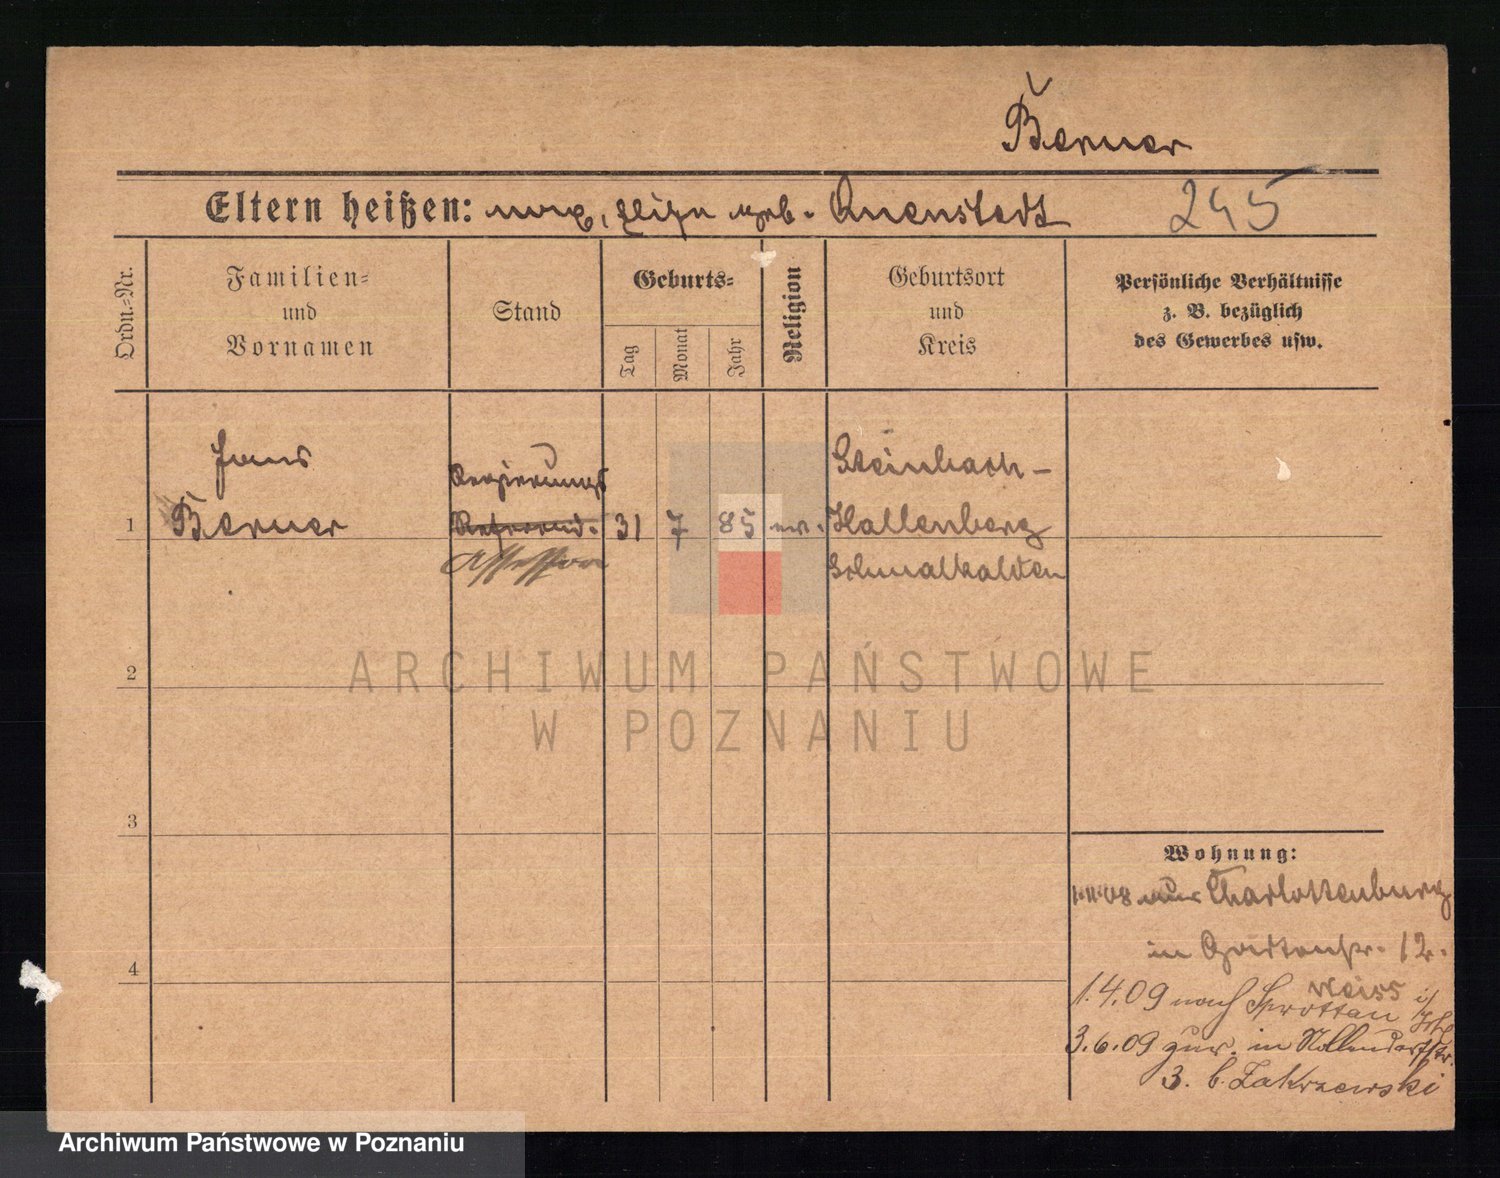 Berner
Eltern heißen: Max, Eliza geb. Quenstedt 245
Ordn.=Nr.
Familien=
und
Vornamen
Stand
Geburts=
Tag
Monat
Jahr
Religion
Geburtsort
und
Kreis
Persönliche Verhältnisse
z. B. bezüglich
des Gewerbes usw.
1
Hans
Berner
Regierungs
Referend.
Assessor
31 7 85 ev.
Steinbach-
Hallenberg
Schmalkalden
2
3
4
Wohnung:
1.11.08 aus Charlottenburg
in 12.
Weiss
1.4.09 nach Sprottau i/
3.6.09 zur. in Nollendorfstr.
3. b. Zakrzewski
ARCHIWUM PAŃSTWOWE
W POZNANIU
Archiwum Państwowe w Poznaniu